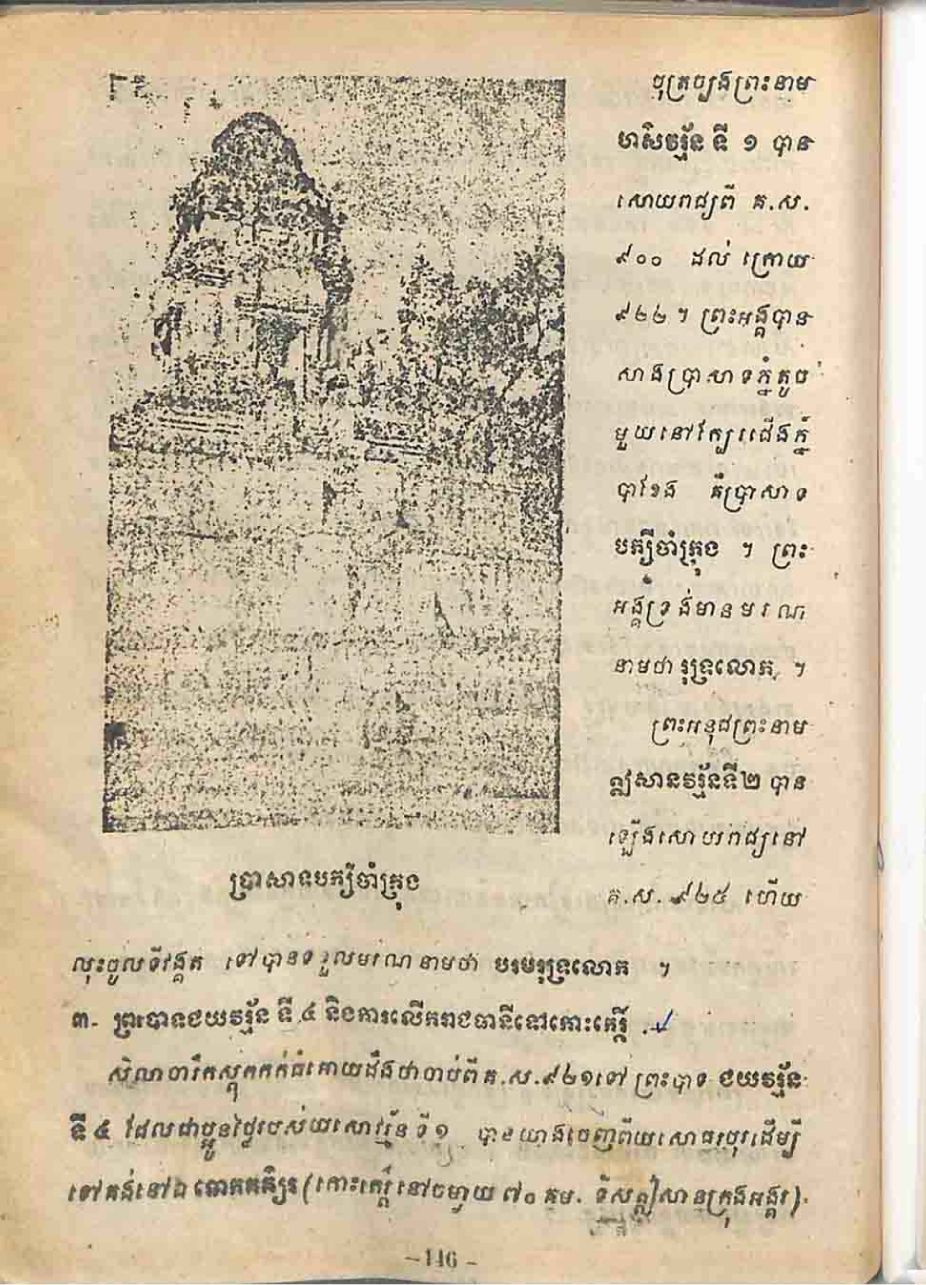 បុត្រច្បងព្រះនាម
ហសិវរ្ម័ន ទី ១ បាន
សោយរាជ្យពី គ.ស.
៩០០ ដល់ ក្រោយ
៩២២ ។ ព្រះអង្គបាន
សាងប្រាសាទភ្នំតូច
មួយនៅក្បែរជើងភ្នំ
បាខែង គឺប្រាសាទ
បក្សីចាំក្រុង ។ ព្រះ
អង្គទ្រង់មានមរណ
នាមថា រុទ្រលោក ។
ព្រះអនុជព្រះនាម
ឦសានវរ្ម័នទី២ បាន
ឡើងសោយរាជ្យនៅ
គ.ស. ៩២៥ ហើយ
ប្រាសាទបក្សីចាំក្រុង
លុះចូលទីវង្គត ទៅបានទទួលមរណនាមថា បរមរុទ្រលោក ។
៣- ព្រះបាទជយវរ្ម័ន ទី ៤ និងការលើករាជធានីទៅកោះកេរ្តិ៍ .
សិលាចារឹកស្តុកកក់ធំអោយដឹងថាចាប់ពីគ.ស.៩២១ទៅ ព្រះបាទ ជយវរ្ម័ន
ទី ៤ ដែលជាប្អូនថ្លៃរបស់យសោវរ្ម័ន ទី ១ បានយាងចេញពីយសោធរបុរដើម្បី
ទៅគង់នៅឯ ចោកគគ្យិរ (កោះកេរ្តិ៍ នៅចម្ងាយ ៧០ គម. ទិសឦសានក្រុងអង្គរ)
-146-